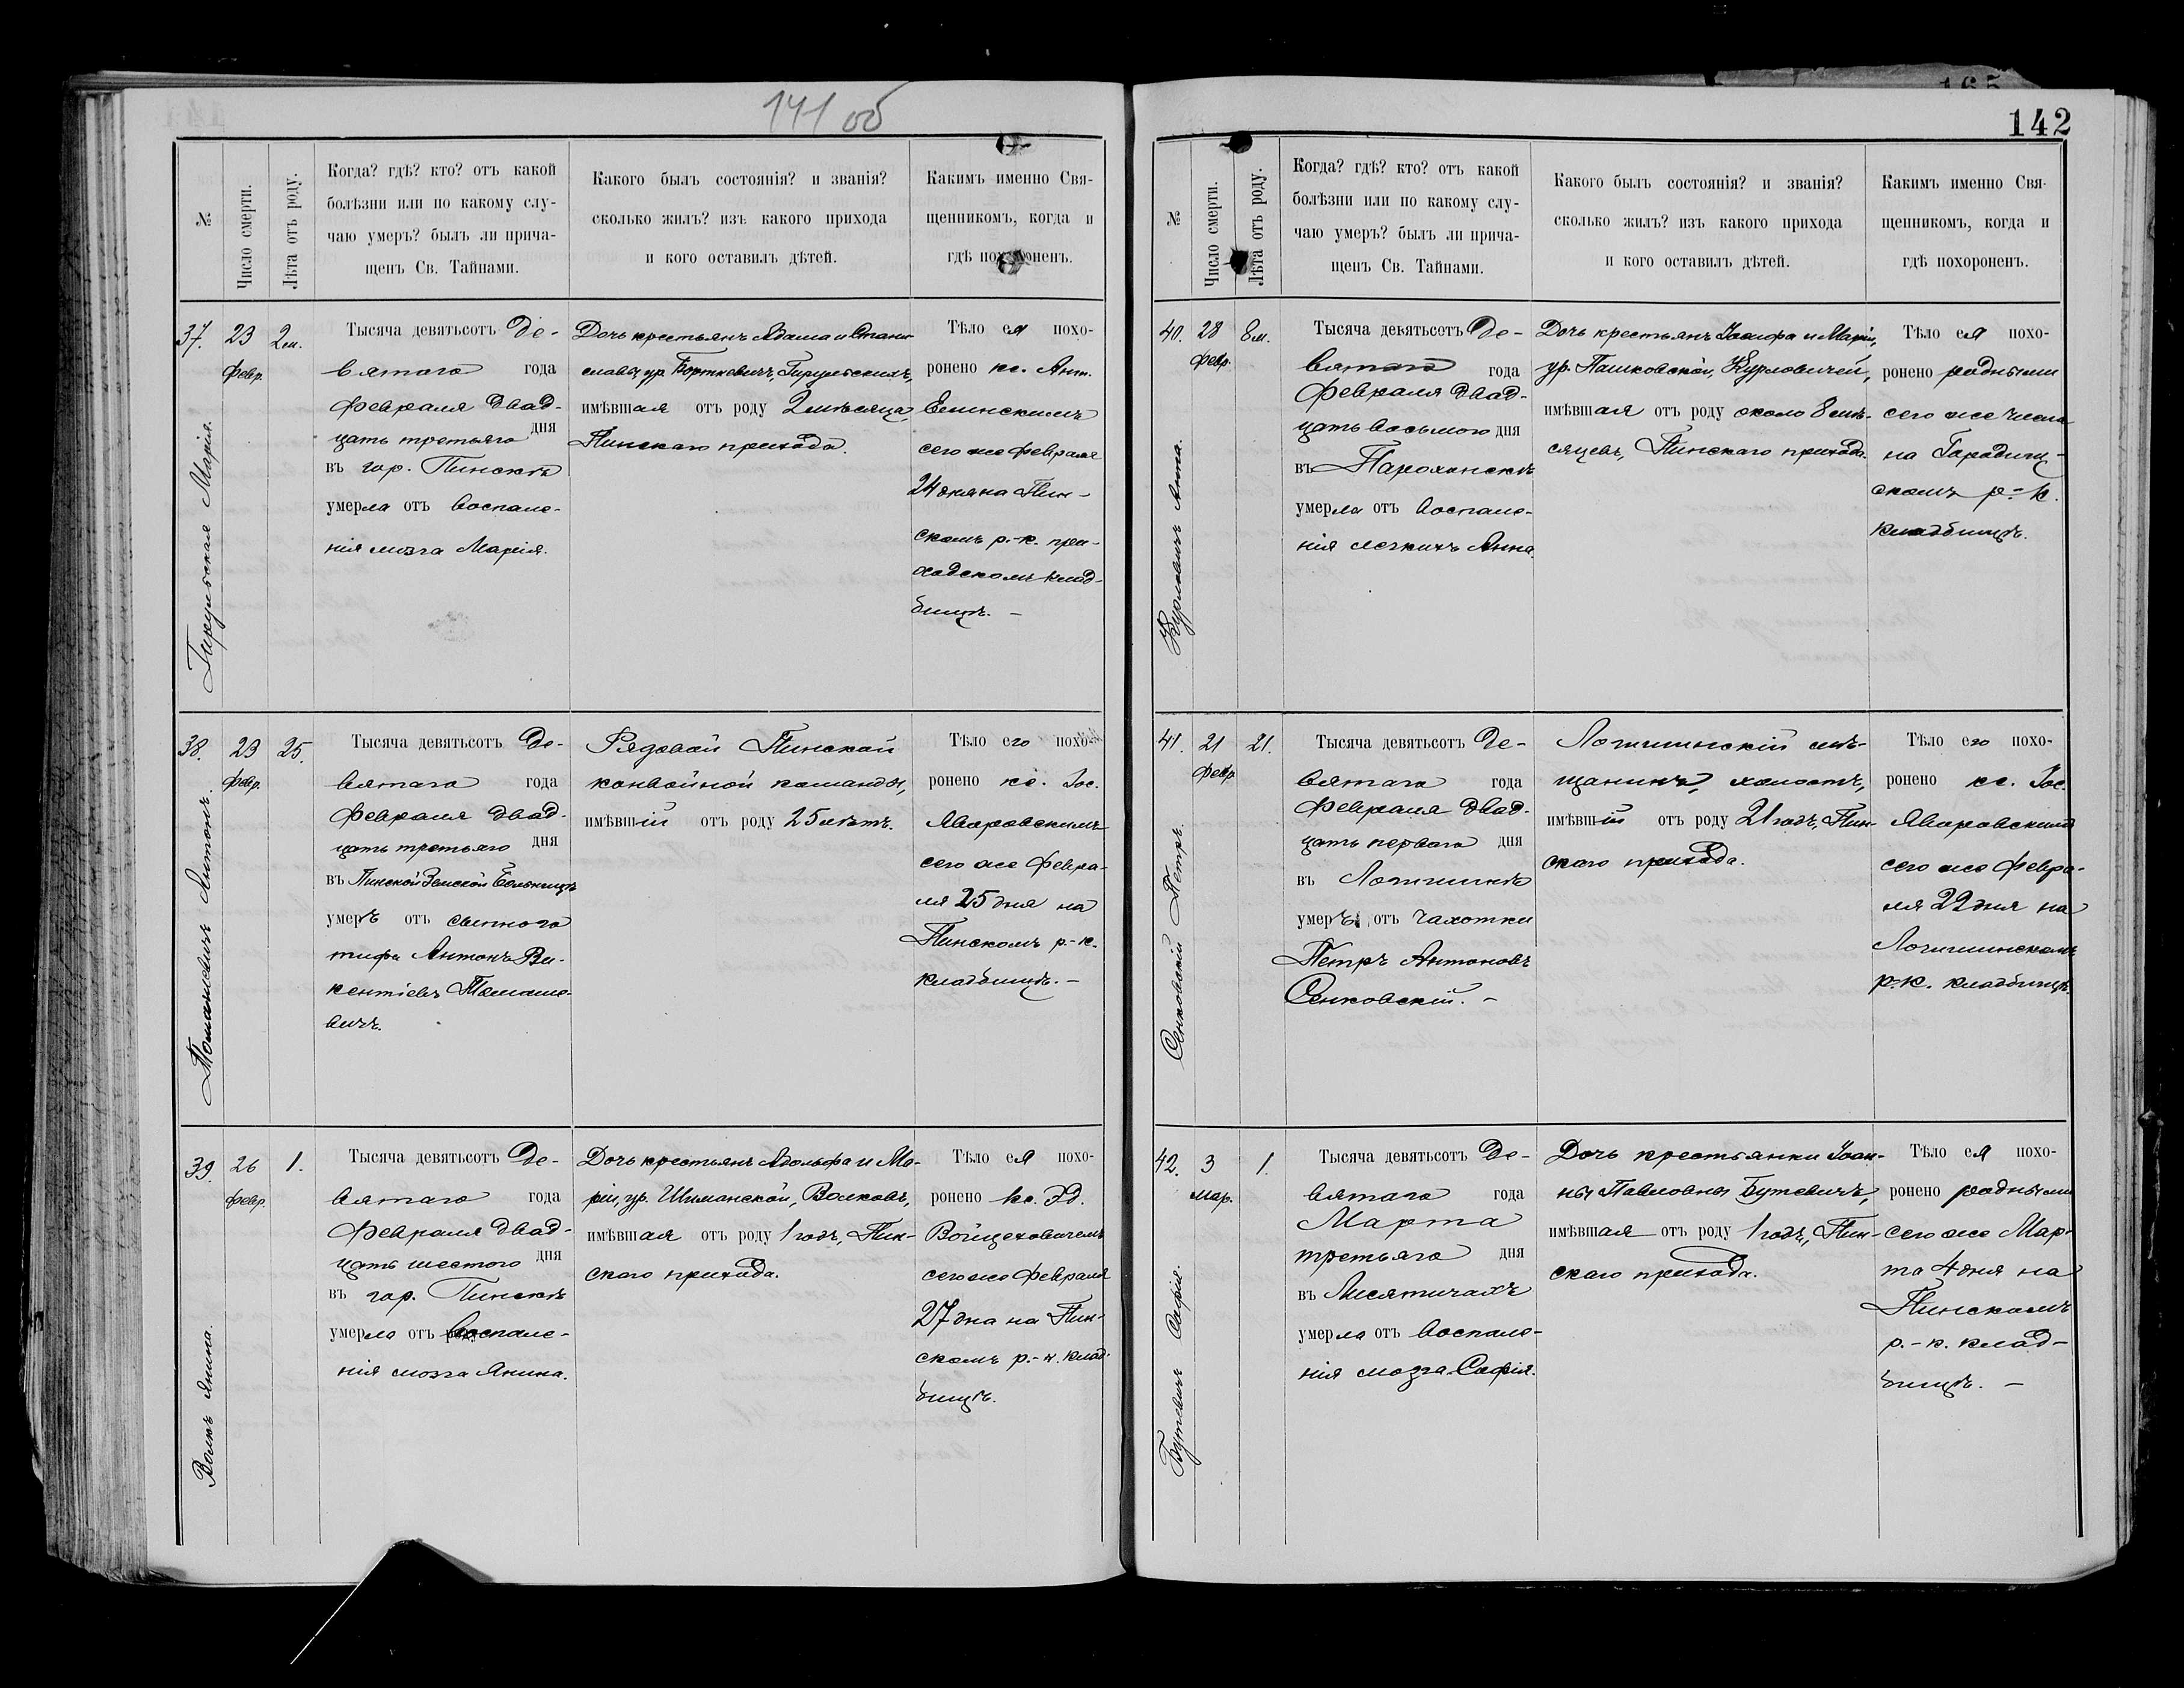 141 об
№
Число смерти.
Лѣта отъ роду.
Когда? гдѣ? кто? отъ какой
болѣзни или по какому слу-
чаю умеръ? былъ ли прича-
щенъ Св. Тайнами.
Какого былъ состоянія? и званія?
сколько жилъ? изъ какого прихода
и кого оставилъ дѣтей.
Какимъ именно Свя-
щенникомъ, когда и
гдѣ похороненъ.
37.
23
Февр.
2 м.
Марія.
Тысяча девятьсотъ де-
вятаго года
Февраля двад-
цать третьяго дня
въ гор. Пинскѣ
умерла отъ воспале-
нія мозга Марія.
Дочь крестьянъ Адама и Стани-
славы, ур. Борткевичъ,
имѣвшая отъ роду 2 мѣсяца,
Пинскаго прихода.
Тѣло ея похо-
ронено кс. Ант.
сего же Февраля
24 дня на Пин-
скомъ р.-к. при-
ходскомъ клад-
бищѣ. –
38.
23
Февр.
25.
Антонъ.
Тысяча девятьсотъ де-
вятаго года
Февраля двад-
цать третьяго дня
въ Пинской Земской Больницѣ
умеръ отъ сыпного
тифа Антонъ Ви-
кентіевъ
вичъ.
Рядовой Пинской
конвойной команды,
имѣвшій отъ роду 25 лѣтъ.
Тѣло его похо-
ронено кс. Іос.
Яворовскимъ
сего же Февра-
ля 25 дня на
Пинскомъ р.-к.
кладбищѣ. –
39.
26
Февр.
1.
Волкъ Янина.
Тысяча девятьсотъ де-
вятаго года
Февраля двад-
цать шестого дня
въ гор. Пинскѣ
умерла отъ воспале-
нія мозга Янина.
Дочь крестьянъ Адольфа и Ма-
ріи, ур. Шиманской, Волковъ,
имѣвшая отъ роду 1 годъ, Пин-
скаго прихода.
Тѣло ея похо-
ронено кс. Эд.
Войцеховичемъ
сего же Февраля
27 дня на Пин-
скомъ р.-к. клад-
бищѣ.
165
142
№
Число смерти.
Лѣта отъ роду.
Когда? гдѣ? кто? отъ какой
болѣзни или по какому слу-
чаю умеръ? былъ ли прича-
щенъ Св. Тайнами.
Какого былъ состоянія? и званія?
сколько жилъ? изъ какого прихода
и кого оставилъ дѣтей.
Какимъ именно Свя-
щенникомъ, когда и
гдѣ похороненъ.
40.
28
Февр.
8 м.
Курловичъ Анна.
Тысяча девятьсотъ де-
вятаго года
Февраля двад-
цать восьмого дня
въ Парохонскѣ
умерла отъ воспале-
нія легкихъ Анна.
Дочь крестьянъ Іосифа и Маріи,
ур. Пашковской, Курловичей,
имѣвшая отъ роду около 8 мѣ-
сяцевъ, Пинскаго прихода.
Тѣло ея похо-
ронено родными
сего же числа
на Городищ-
скомъ р.-к.
кладбищѣ.
41.
21
Февр.
21.
Сенковскій Петръ.
Тысяча девятьсотъ де-
вятаго года
Февраля двад-
цать перваго дня
въ Логишинѣ
умеръ отъ чахотки
Петръ Антоновъ
Сенковскій. –
Логишинскій мѣ-
щанинъ, холостъ,
имѣвшій отъ роду 21 годъ, Пин-
скаго прихода.
Тѣло его похо-
ронено кс. Іос.
Яворовскимъ
сего же Февра-
ля 22 дня на
Логишинскомъ
р.-к. кладбищѣ.
42.
3
Мар.
1.
Бутевичъ Софія.
Тысяча девятьсотъ де-
вятаго года
Марта
третьяго дня
въ Лисятичахъ
умерла отъ воспале-
нія мозга Софія.
Дочь крестьянки Іоан-
ны Павловны Бутевичъ,
имѣвшая отъ роду 1 годъ, Пин-
скаго прихода.
Тѣло ея похо-
ронено родными
сего же Мар-
та 4 дня на
Пинскомъ
р.-к. клад-
бищѣ. –